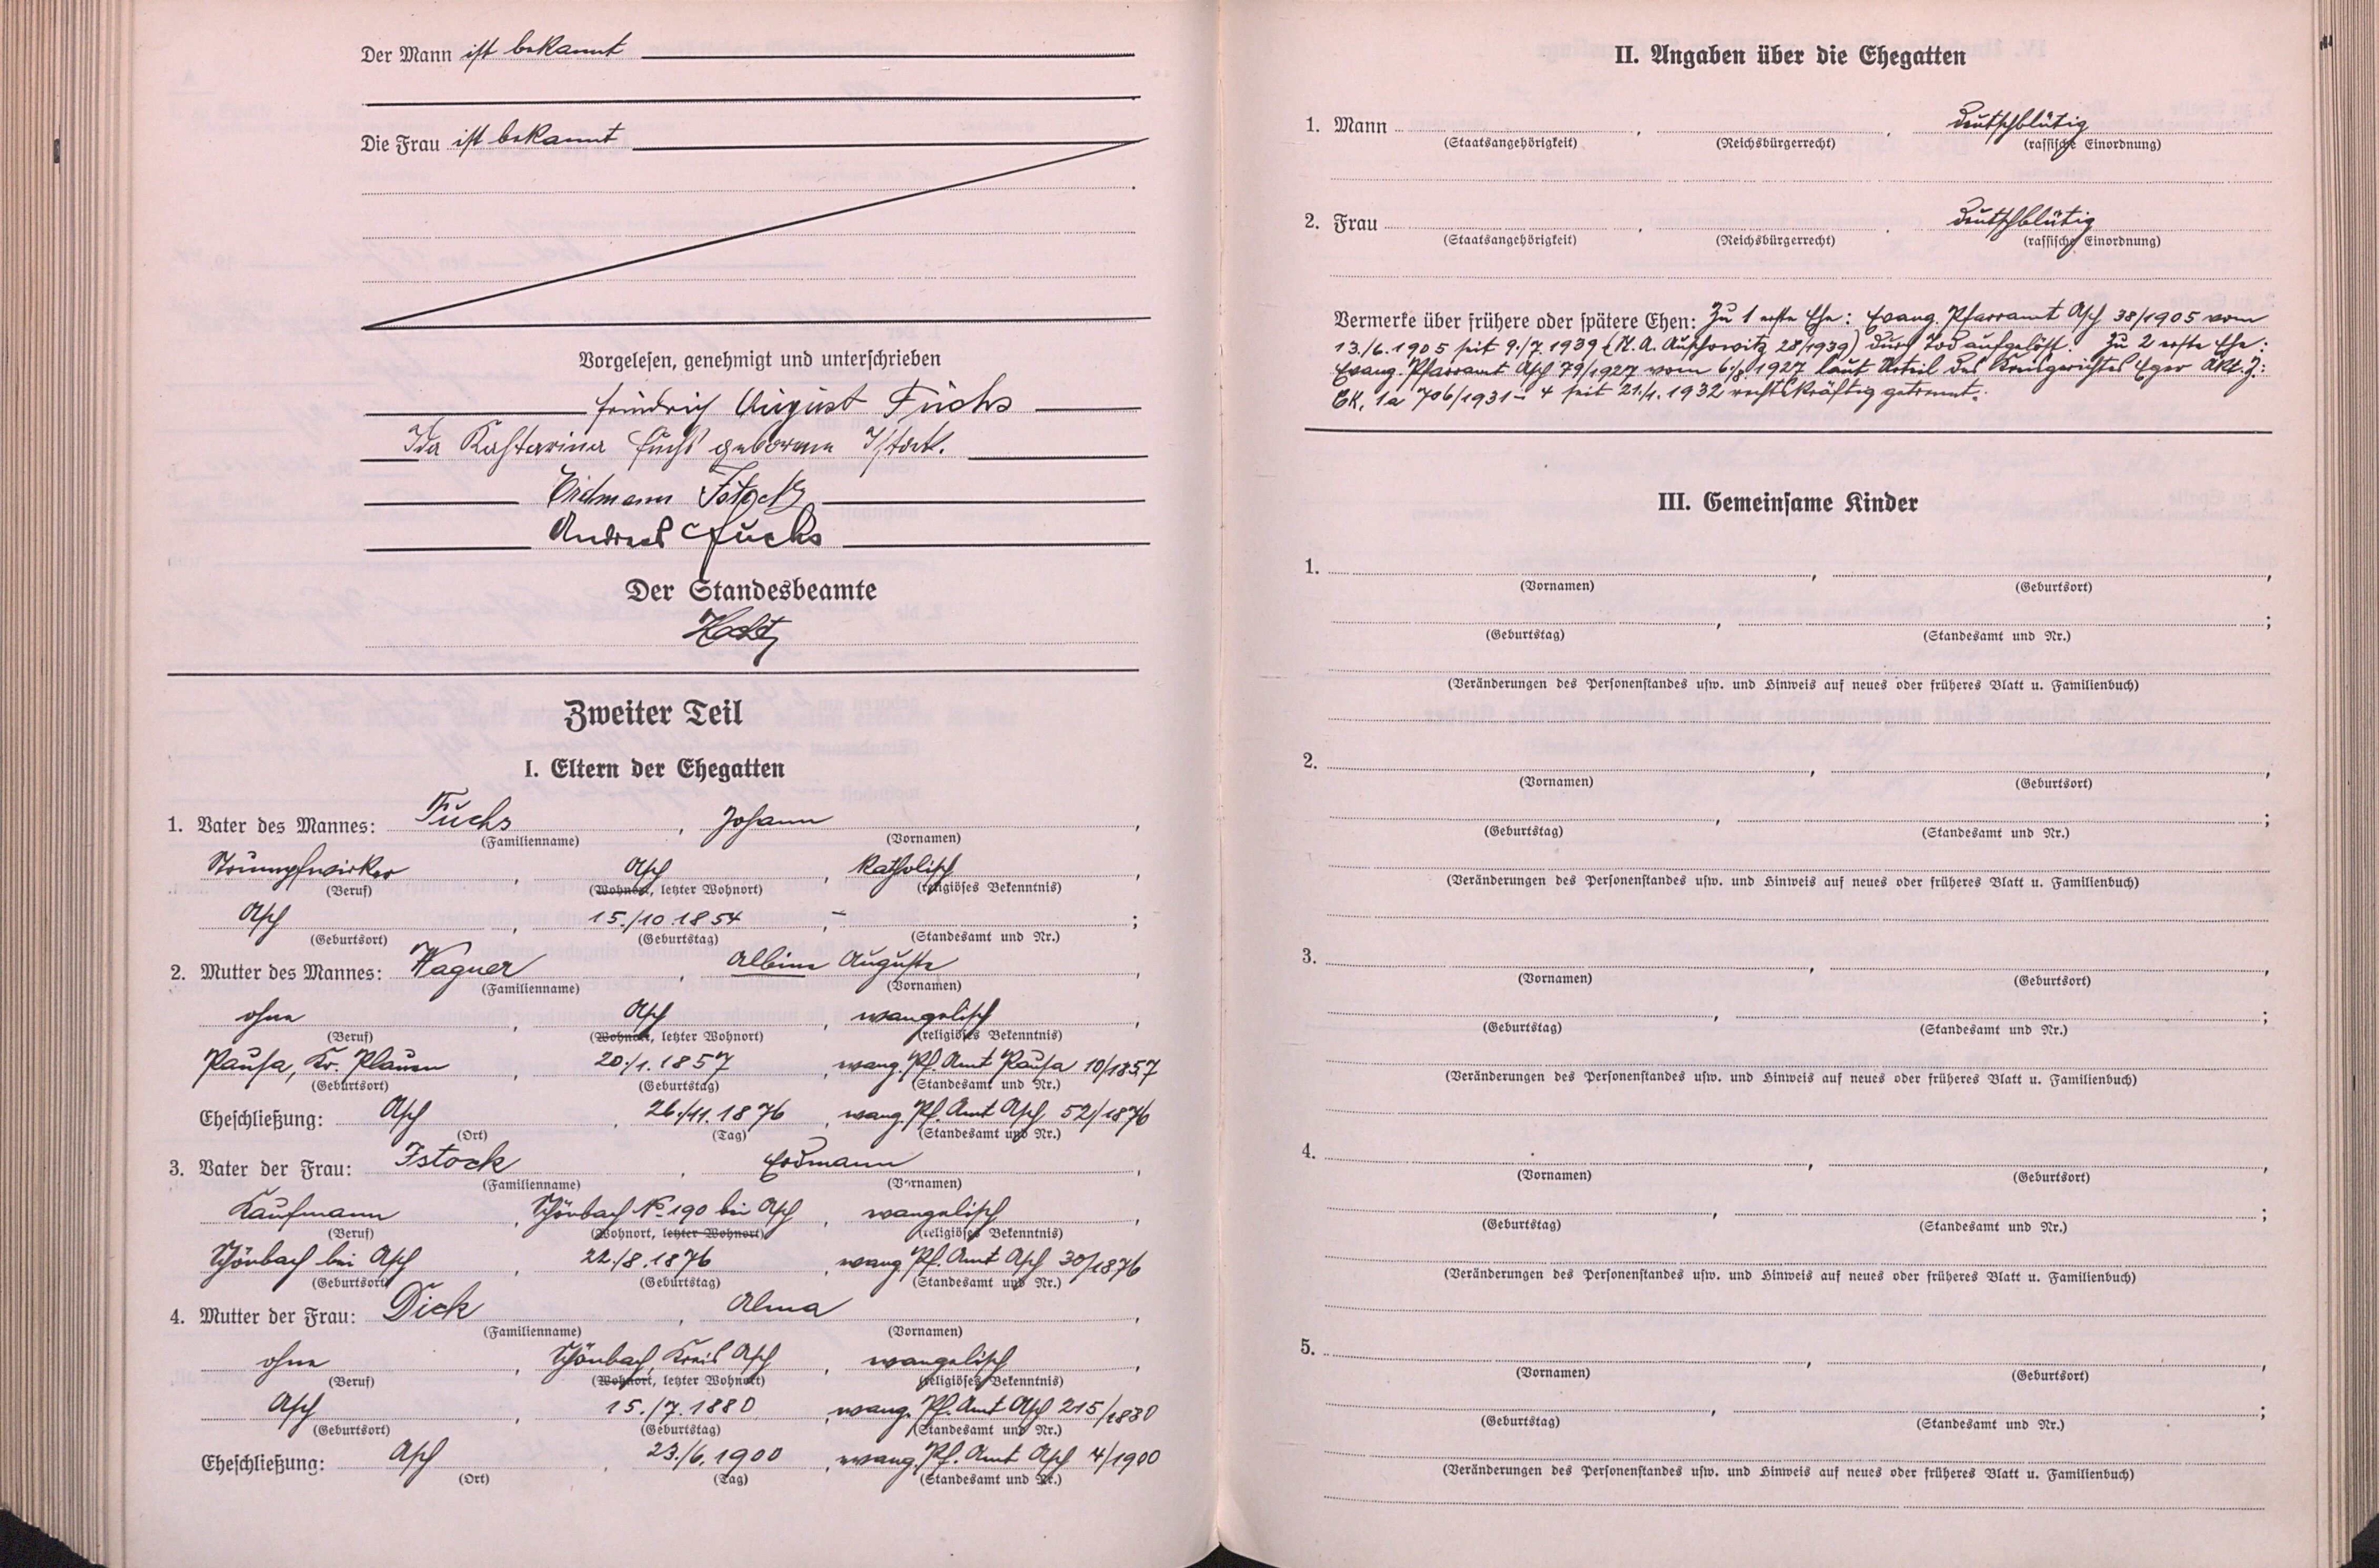 Der Mann ist bekannt
Die Frau ist bekannt
Vorgelesen, genehmigt und unterschrieben
Friedrich August Fuchs
Ida Katharina Fuchs geborene Istock.
Erdmann Istock
Andreas Fuchs
Der Standesbeamte
Zweiter Teil
I. Eltern der Ehegatten
1. Vater des Mannes: Fuchs, Johann,
(Familienname) (Vornamen)
Strumpfwirker, Asch, katholisch,
(Beruf) (Wohnort, letzter Wohnort) (religiöses Bekenntnis)
Asch, 15./10.1854, - ;
(Geburtsort) (Geburtstag) (Standesamt und Nr.)
2. Mutter des Mannes: Wagner, Albine Auguste,
(Familienname) (Vornamen)
ohne, Asch, evangelisch,
(Beruf) (Wohnort, letzter Wohnort) (religiöses Bekenntnis)
Pausa, Kr. Plauen, 20./1.1857, evang. Pf. Amt Pausa 10/1857
(Geburtsort) (Geburtstag) (Standesamt und Nr.)
Eheschließung: Asch, 26./11.1876, evang. Pf. Amt Asch 52/1876
(Ort) (Tag) (Standesamt und Nr.)
3. Vater der Frau: Istock, Erdmann,
(Familienname) (Vornamen)
Kaufmann, Schönbach No 190 bei Asch, evangelisch,
(Beruf) (Wohnort, letzter Wohnort) (religiöses Bekenntnis)
Schönbach bei Asch, 22./8.1876, evang. Pf. Amt Asch 30/1876
(Geburtsort) (Geburtstag) (Standesamt und Nr.)
4. Mutter der Frau: Dick, Alma,
(Familienname) (Vornamen)
ohne, Schönbach, Kreis Asch, evangelisch,
(Beruf) (Wohnort, letzter Wohnort) (religiöses Bekenntnis)
Asch, 15./7.1880, evang. Pf. Amt Asch 215/1880
(Geburtsort) (Geburtstag) (Standesamt und Nr.)
Eheschließung: Asch, 23./6.1900, evang. Pf. Amt Asch 4/1900
(Ort) (Tag) (Standesamt und Nr.)
II. Angaben über die Ehegatten
1. Mann , , deutschblütig
(Staatsangehörigkeit) (Reichsbürgerrecht) (rassische Einordnung)
2. Frau , , deutschblütig
(Staatsangehörigkeit) (Reichsbürgerrecht) (rassische Einordnung)
Vermerke über frühere oder spätere Ehen: Zu 1 erste Ehe: Evang. Pfarramt Asch 38/1905 vom
13./6.1905 seit 9./7.1939 (St. A. Auschowitz 28/1939) durch Tod aufgelöst. Zu 2 erste Ehe:
Evang. Pfarramt Asch 79/1927 vom 6./8.1927 laut Urteil des Kreisgerichtes Eger Akt. Z.:
Ck. 1a 706/1931-4 seit 21./1.1932 rechtskräftig getrennt.
III. Gemeinsame Kinder
1. , ,
(Vornamen) (Geburtsort)
, ;
(Geburtstag) (Standesamt und Nr.)
(Veränderungen des Personenstandes usw. und Hinweis auf neues oder früheres Blatt u. Familienbuch)
2. , ,
(Vornamen) (Geburtsort)
, ;
(Geburtstag) (Standesamt und Nr.)
(Veränderungen des Personenstandes usw. und Hinweis auf neues oder früheres Blatt u. Familienbuch)
3. , ,
(Vornamen) (Geburtsort)
, ;
(Geburtstag) (Standesamt und Nr.)
(Veränderungen des Personenstandes usw. und Hinweis auf neues oder früheres Blatt u. Familienbuch)
4. , ,
(Vornamen) (Geburtsort)
, ;
(Geburtstag) (Standesamt und Nr.)
(Veränderungen des Personenstandes usw. und Hinweis auf neues oder früheres Blatt u. Familienbuch)
5. , ,
(Vornamen) (Geburtsort)
, ;
(Geburtstag) (Standesamt und Nr.)
(Veränderungen des Personenstandes usw. und Hinweis auf neues oder früheres Blatt u. Familienbuch)